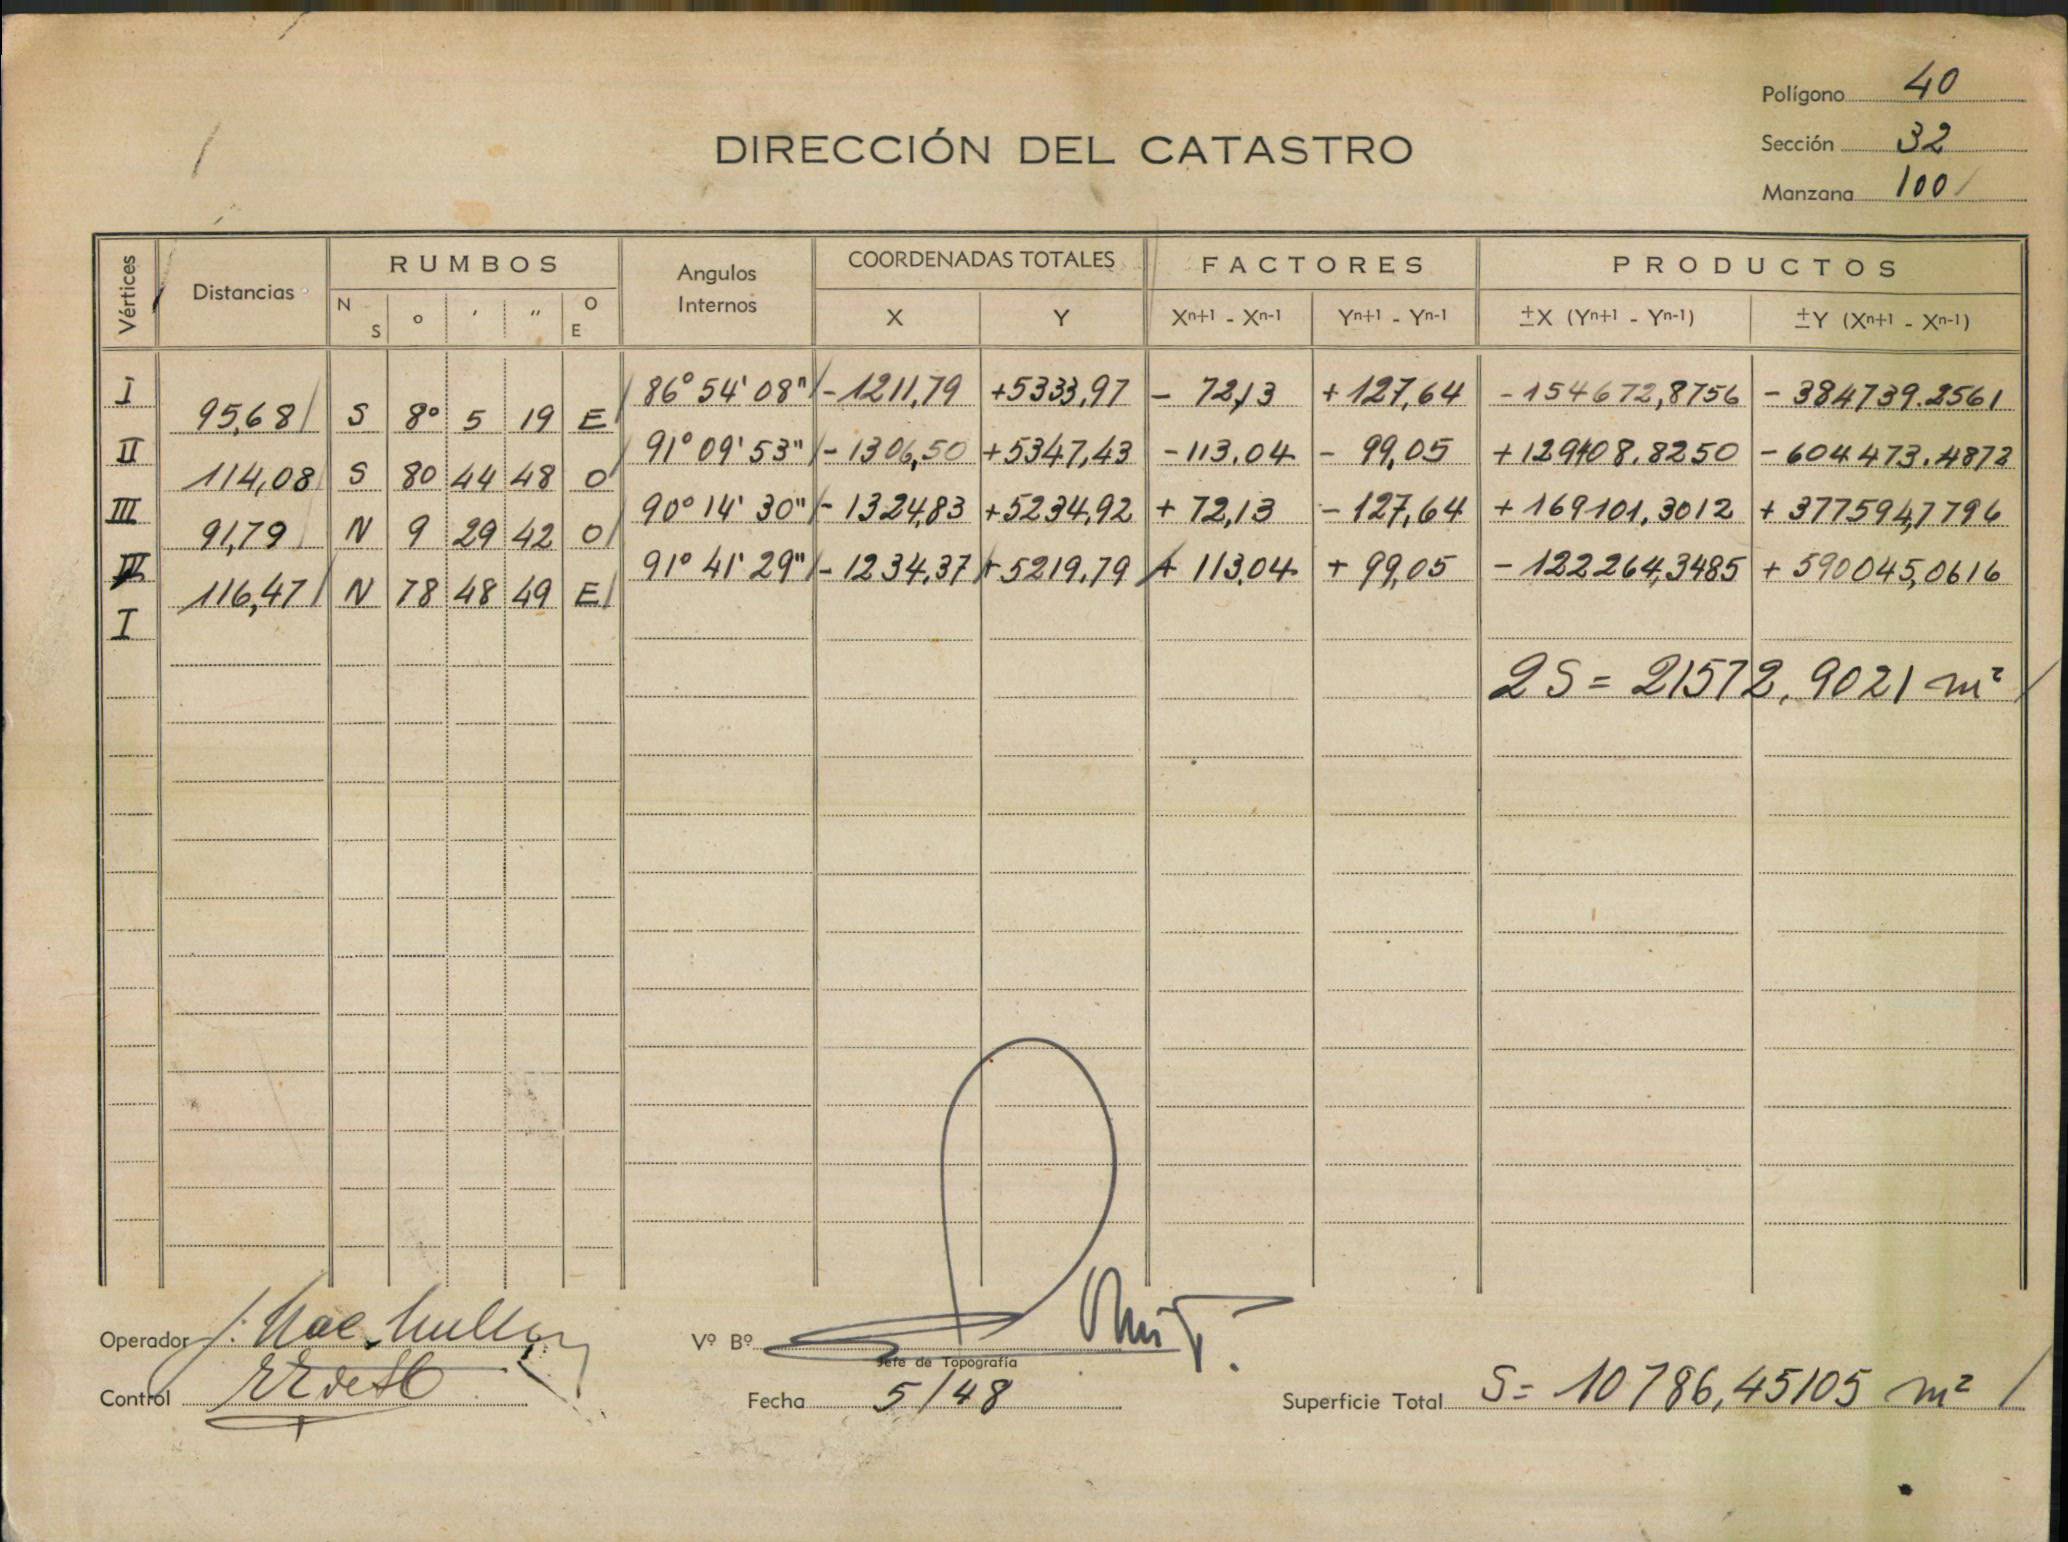 Polígono 40
DIRECCIÓN DEL CATASTRO
Sección 32
Manzana 100
Vértices Distancias RUMBOS Angulos Internos COORDENADAS TOTALES FACTORES PRODUCTOS
N S o ′ ″ O E X Y Xn+1 - Xn-1 Yn+1 - Yn-1 ±X (Yn+1 - Yn-1) ±Y (Xn+1 - Xn-1)
I 86° 54' 08" - 1211,79 +5333,97 - 72,13 + 127,64 - 154672,8756 - 384739.2561
95,68 S 8° 5 19 E
II 91° 09' 53" - 1306,50 +5347,43 - 113.04 - 99,05 + 129408.8250 - 604473.4872
114,08 S 80 44 48 O
III 90° 14' 30" - 1324,83 +5234,92 + 72,13 - 127,64 + 169101,3012 + 377594,7796
91,79 N 9 29 42 O
IV 91° 41' 29" - 1234,37 + 5219,79 + 113,04 + 99,05 - 122264,3485 + 590045,0616
116,47 N 78 48 49 E
I
2S = 21572,9021 m²
Operador
Vº Bº
Jefe de Topografía
Control
Fecha 5/48
Superficie Total S= 10786,45105 m²